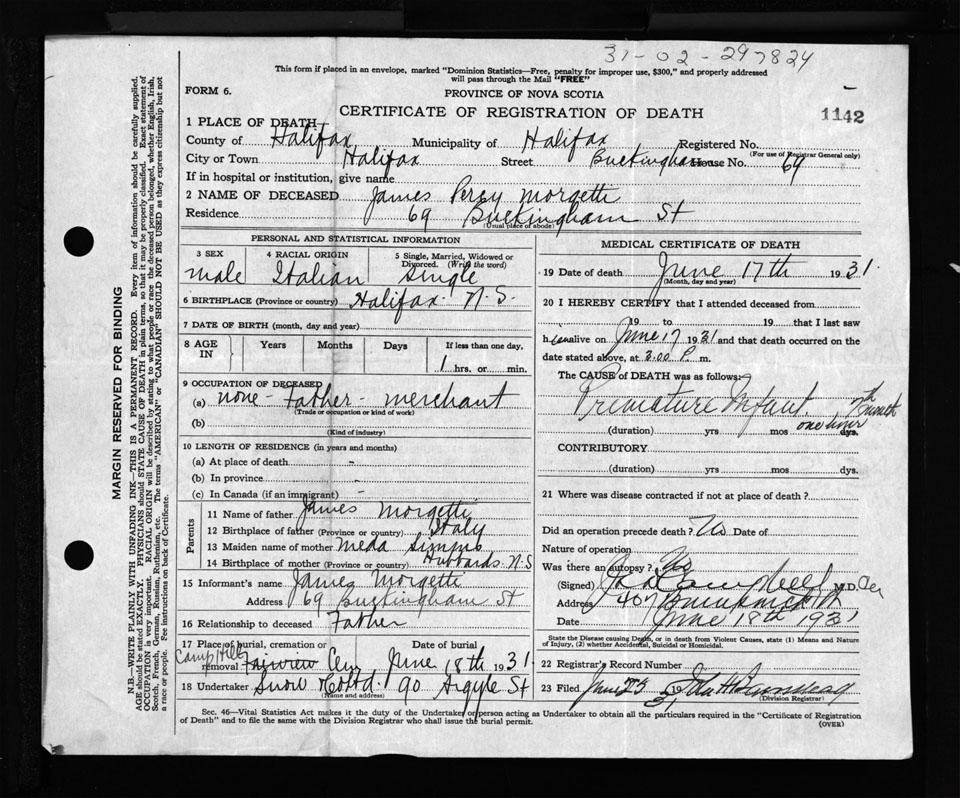 31-02-297824
This form if placed in an envelope, marked "Dominion Statistics—Free, penalty for improper use, $300," and properly addressed
will pass through the Mail "FREE"
FORM 6.
PROVINCE OF NOVA SCOTIA
CERTIFICATE OF REGISTRATION OF DEATH
1142
1 PLACE OF DEATH
County of Halifax Municipality of Halifax Registered No.
(For use of Registrar General only)
City or Town Halifax Street Buckingham House No. 69
If in hospital or institution, give name
2 NAME OF DECEASED James Percy Morgetti
Residence 69 Buckingham St
(Usual place of abode)
PERSONAL AND STATISTICAL INFORMATION
3 SEX 4 RACIAL ORIGIN 5 Single, Married, Widowed or
Divorced. (Write the word)
male Italian Single
6 BIRTHPLACE (Province or country) Halifax N.S.
7 DATE OF BIRTH (month, day and year)
8 AGE IN Years Months Days If less than one day,
1 hrs. or min.
9 OCCUPATION OF DECEASED
(a) none - Father - merchant
(Trade or occupation or kind of work)
(b)
(Kind of industry)
10 LENGTH OF RESIDENCE (in years and months)
(a) At place of death -
(b) In province -
(c) In Canada (if an immigrant) -
Parents
11 Name of father James Morgetti
12 Birthplace of father (Province or country) Italy
13 Maiden name of mother Meda Simms
14 Birthplace of mother (Province or country) Hubbards N.S
15 Informant's name James Morgetti
Address 69 Buckingham St
16 Relationship to deceased Father
17 Place of burial, cremation or Date of burial
Camp Hill
removal Fairview Cem June 18th 1931
18 Undertaker Snow & Co Ltd. 90 Argyle St
(Name and address)
MEDICAL CERTIFICATE OF DEATH
19 Date of death June 17th 1931.
(Month, day and year)
20 I HEREBY CERTIFY that I attended deceased from
19 to 19 that I last saw
him alive on June 17 1931 and that death occurred on the
date stated above, at 3.00 P. m.
The CAUSE of DEATH was as follows:
Premature Infant. 7th month
one hour
(duration) yrs mos dys.
CONTRIBUTORY
(duration) yrs mos dys.
21 Where was disease contracted if not at place of death?
Did an operation precede death? No Date of
Nature of operation
Was there an autopsy? No
(Signed) Campbell M.D.
Address 407 Brunswick St
Date June 18th 1931
State the Disease causing Death, or in death from Violent Causes, state (1) Means and Nature
of Injury, (2) whether Accidental, Suicidal or Homicidal.
22 Registrar's Record Number
23 Filed June 23 1931
(Division Registrar)
Sec. 46—Vital Statistics Act makes it the duty of the Undertaker or person acting as Undertaker to obtain all the particulars required in the "Certificate of Registration
of Death" and to file the same with the Division Registrar who shall issue the burial permit.
(OVER)
MARGIN RESERVED FOR BINDING
N.B.—WRITE PLAINLY WITH UNFADING INK—THIS IS A PERMANENT RECORD. Every item of information should be carefully supplied.
AGE should be stated EXACTLY. PHYSICIANS should STATE CAUSE OF DEATH in plain terms, so that it may be properly classified. Exact statement of
OCCUPATION is very important. RACIAL ORIGIN will be described by stating to what people or race the deceased person belonged, whether English, Irish,
Scotch, French, German, Russian, Ruthenian, etc. The terms "AMERICAN" or "CANADIAN" SHOULD NOT BE USED as they express citizenship but not
a race or people. See instructions on back of Certificate.